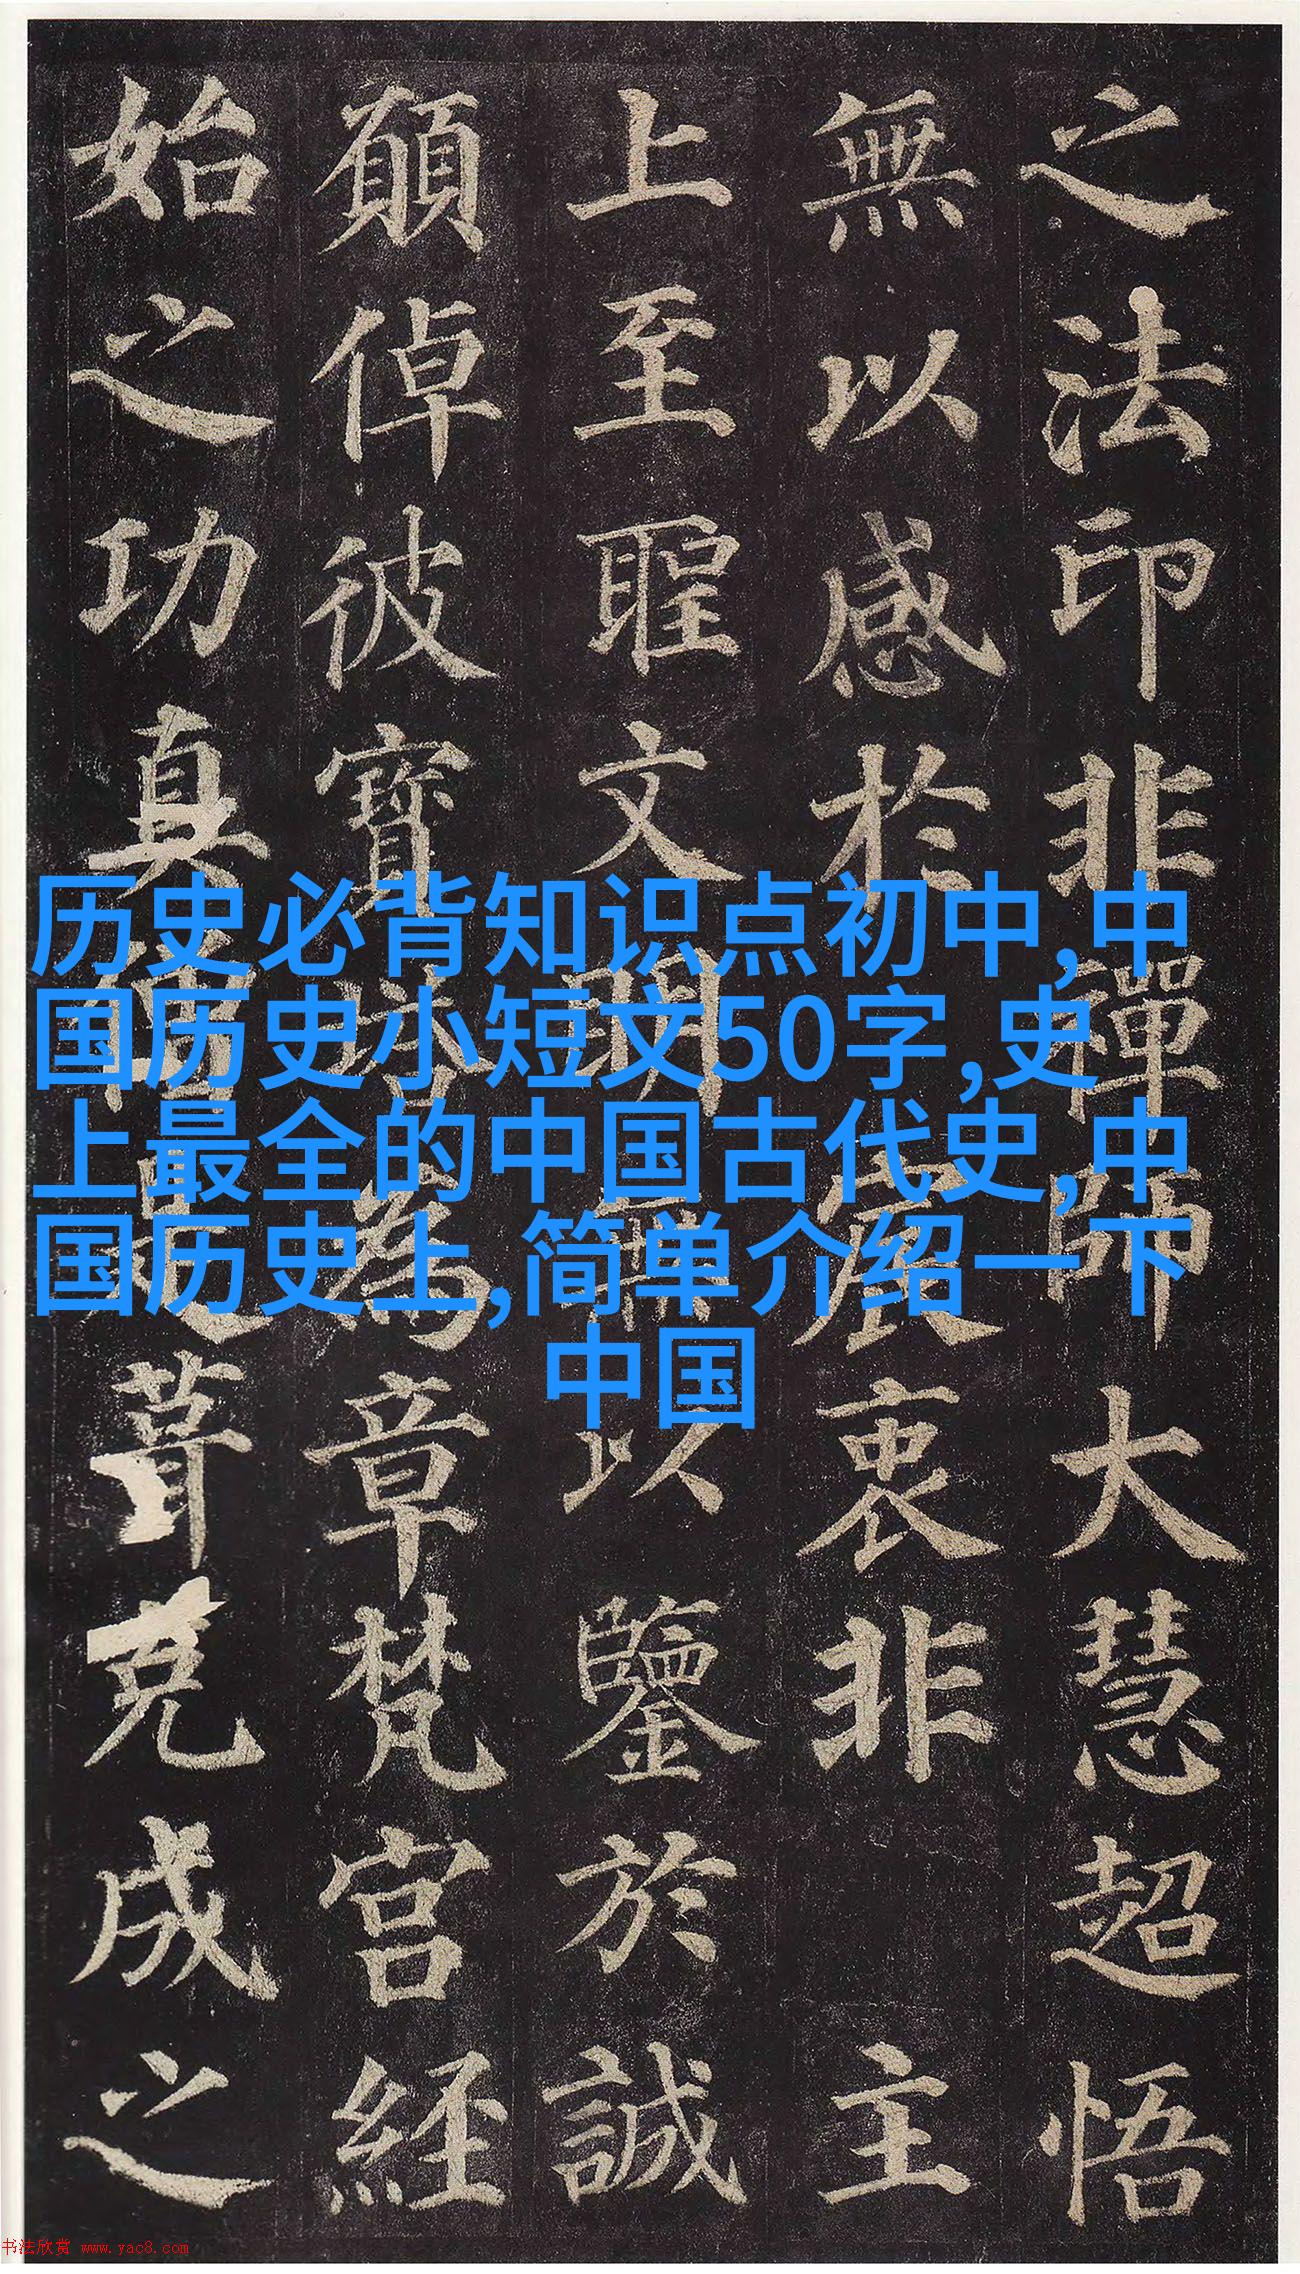 之法印非禪師大慧超悟
無以感於宸衷非主
上至聖文明無以鑒於誠
願倬彼寶塔為章梵宮經
始之功真僧是葺克成之
历史必背知识点初中,中
国历史小短文50字,史
上最全的中国古代史,中
国历史上,简单介绍一下
中国
书法欣赏 www.yac8.com